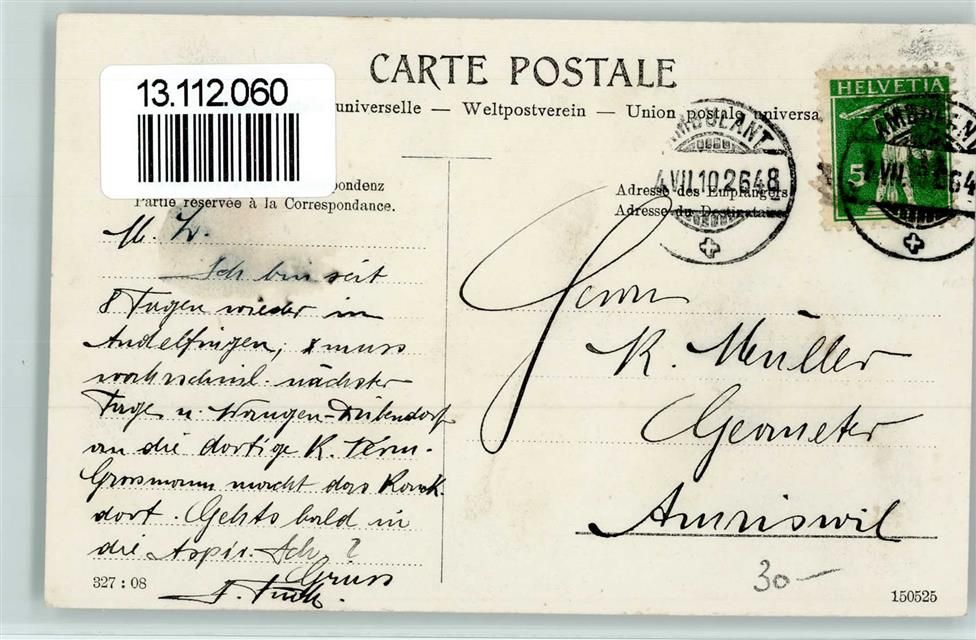 13.112.060
CARTE POSTALE
universelle — Weltpostverein — Union postale universa
pondenz
Partie réservée à la Correspondance.
Adresse des Empfängers
Adresse du Destinataire
HELVETIA
5
AMBULANT
4.VII.10.2648
AMBULANT
M. L.
Ich bin seit
8 Tagen wieder in
Andelfingen, muss
wahrscheinl. nächster
Tage n. Wangen-Dübendorf
an die dortige K. Verm.
Grossmann macht das Konk.
dort. Gehts bald in
die Aspir. Sch. ?
Gruss
Herrn
K. Müller
Geometer
Amriswil
30 —
327 : 08
150525